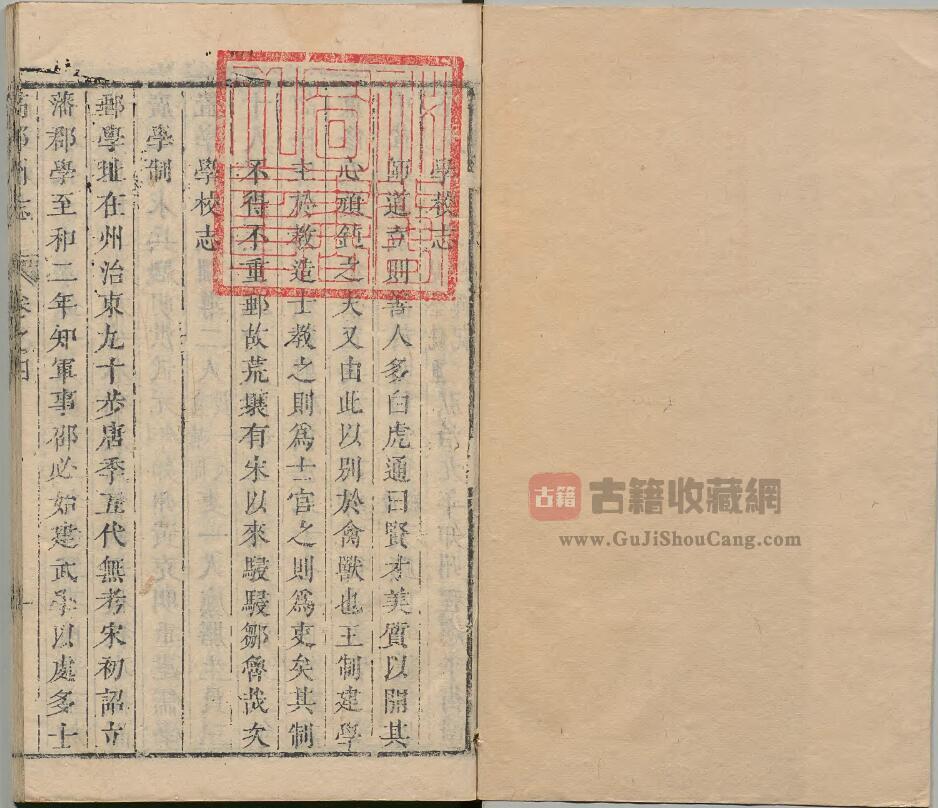 學校志
師道立則善人多白虎通曰賢才美質以開其
心頑鈍之夫又由此以別於禽獸也王制建學
主於教造士教之則爲士官之則爲吏矣其制
不得不重郵故荒壤有宋以來駸駸鄒魯哉次
學校志
學制
郵學址在州治東九十步唐季五代無考宋初詔立
藩郡學至和二年知軍事邵必始建武學以處多士
高郵州志 卷之四 一
古籍 古籍收藏網
www.GuJiShouCang.com